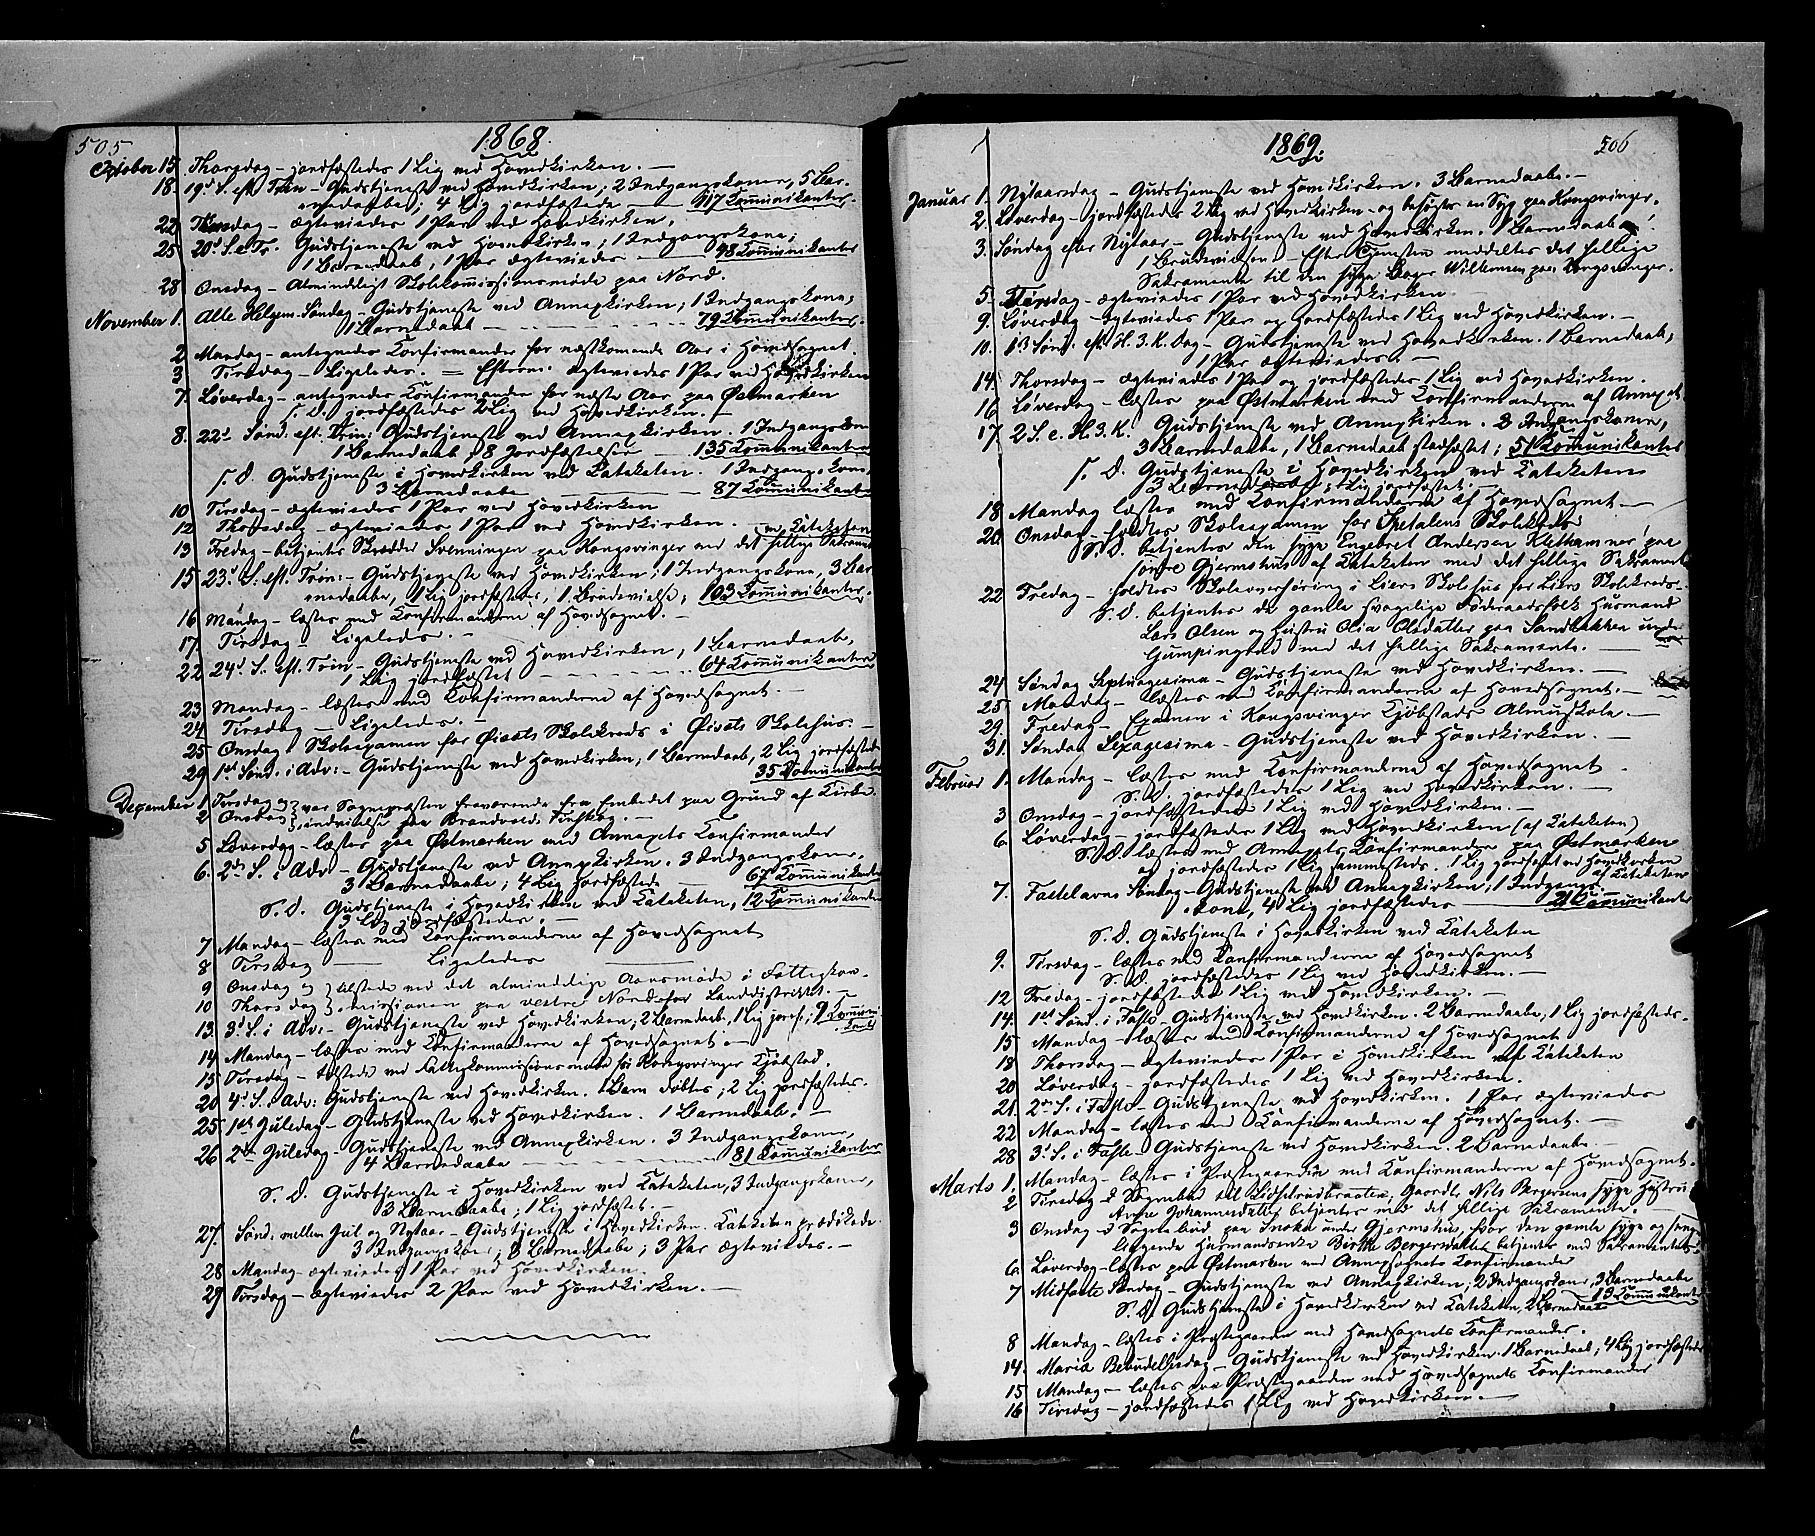 505
1868.
October 15. Thorsdag – jordfæstedes 1 Lig ved Hovedkirken. –
18. 19d S. eft. Trin – Gudstjeneste ved Hovedkirken; 2 Indgangskoner, 5 Bar-
nedaabe; 4 Lig jordfæstede – 117 Communikanter.
22. Torsdag – ægteviedes 1 Par ved Hovedkirken.
25. 20d S. e. Tr. Gudstjeneste ved Hovedkirken; 1 Indgangskone;
1 Barnedaab; 1 Par ægteviedes – 48 Communikanter
28 Onsdag – Almindeligt Skolekommissionsmøde paa Nord.
November 1. Alle Helgen Søndag – Gudstjeneste ved Annexkirken; 1 Indgangskone;
1 Barnedaab – 79 Communikanter.
2 Mandag – antegnedes Confirmander for næstkomende Aar i Hovedsognet.
3 Tirsdag – Ligeledes. = Efterm. ægteviedes 1 Par ved Hovedkirken
7. Løverdag – antegnedes Confirmander for næste Aar paa Østmarken
S. D. jordfæstedes 2 Lig ved Hovedkirken. –
8. 22d Sønd. eft. Trin: Gudstjeneste ved Annexkirken. 1 Indgangskone
1 Barnedaab, 8 Jordfæstelser – 135 Communikanter
S. D. Gudstjeneste i Hovedkirken ved Kateketen. 1 Indgangskone,
3 Barnedaabe – 87 Communikanter
10 Tirsdag – ægteviedes 1 Par ved Hovedkirken
12 Thorsdag – ægteviedes 1 Par ved Hovedkirken. – ved Kateketen
13 Fredag – betjentes Skrædder Svenningsen paa Kongsvinger med det hellige Sakrament
15 23d S. eft. Trin: – Gudstjeneste ved Hovedkirken; 1 Indgangskone, 3 Bar-
nedaabe, 1 Lig jordfæstedes, 1 Brudevielse; 103 Communikanter.
16 Mandag – læstes med Confirmanderne af Hovedsognet. –
17. Tirsdag – Ligeledes. –
22 24d S. eft. Trin – Gudstjeneste ved Hovedkirken, 1 Barnedaab,
1 Lig jordfæstet – 64 Communikanter
23 Mandag – læstes med Confirmanderne af Hovedsognet. –
24 Tirsdag – Ligeledes. –
25 Onsdag. Skoleexamen for Øiets Skolekreds i Øiets Skolehus. –
29 1ste Sønd. i Adv: – Gudstjeneste ved Hovedkirken; 1 Barnedaab, 2 Lig jordfæstede
35 Communikanter
December 1 Tirsdag og } var Sognepræsten fraværende fra Embedet paa Grund af Kirke-
2 Onsdag } indvielse paa Brandvold
5 Løverdag – læstes paa Østmarken med Annexets Confirmander
6. 2den S. i Adv – Gudstjeneste ved Annexkirken. 3 Indgangskoner,
3 Barnedaabe, 4 Lig jordfæstede – 67 Communikanter
S. D. Gudstjeneste i Hovedkirken ved Kateketen, 12 Communikanter
3 Lig jordfæstedes. –
7 Mandag – læstes med Confirmanderne af Hovedsognet
8 Tirsdag – Ligeledes –
9 Onsdag og } tilstede ved det almindelige Aarsmøde i Fattigkom-
10 Thorsdag } missionen paa vestre Nord for Landdistriktet. –
13. 3d S. i Adv: – Gudstjeneste ved Hovedkirken; 2 Barnedaabe, 1 Lig jordf.; 9 Communi-
kanter
14 Mandag – læstes med Confirmanderne af Hovedsognet –
15 Tirsdag – tilstede ved Fattigkommissionsmøde for Kongsvinger Kjøbstad.
20 4d S. i Adv: Gudstjeneste ved Hovedkirken. 1 Barn døbtes; 2 Lig jordfæstedes.
25 1ste Juledag – Gudstjeneste ved Hovedkirken. 1 Barnedaab. –
26 2den Juledag – Gudstjeneste ved Annexkirken. 3 Indgangskoner,
4 Barnedaabe – 81 Communikanter
S. D. Gudstjeneste i Hovedkirken ved Kateketen, 3 Indgangskoner,
3 Barnedaabe; 1 Lig jordfæstet. –
27. Sønd. mellem Jul og Nytaar – Gudstjeneste i Hovedkirken. Kateketen prædikede.
3 Indgangskoner; 8 Barnedaabe; 3 Par ægteviedes. –
28 Mandag – ægteviedes 1 Par ved Hovedkirken.
29 Tirsdag – ægteviedes 2 Par ved Hovedkirken. –
1869.
506
Januar 1. Nytaarsdag – Gudstjeneste ved Hovedkirken. 3 Barnedaabe. –
2. Løverdag – jordfæstedes 2 Lig ved Hovedkirken – og besøgtes en Syg paa Kongsvinger.
3. Søndag efter Nytaar – Gudstjeneste ved Hovedkirken. 1 Barnedaab,
1 Brudevielsen – Efter Tjenesten meddeltes det hellige
Sakramente til den syge Bager Wilhemsen paa Kongsvinger.
5. Tirsdag – ægteviedes 1 Par ved Hovedkirken
9. Løverdag – ægteviedes 1 Par og jordfæstedes 1 Lig ved Hovedkirken. –
10. 1ste Sønd. eft. H. 3. K. Dag – Gudstjeneste ved Hovedkirken. 1 Barnedaab,
1 Par ægteviedes. –
14. Thorsdag – ægteviedes 1 Par og jordfæstedes 1 Lig ved Hovedkirken.
16 Løverdag – læstes paa Østmarken med Confirmanderne af Annexet.
17. 2 S. e. H. 3. K. Gudstjeneste ved Annexkirken. 2 Indgangskoner,
3 Barnedaabe, 1 Barnedaab stadfæstet; 51 Communikanter
S. D. Gudstjeneste i Hovedkirken ved Kateketen
3 Barnedaabe; 1 Lig jordfæstet. –
18. Mandag læstes med Confirmanderne af Hovedsognet –
20. Onsdag – holdtes Skoleexamen for Skolekreds
S. D. betjentes den syge Engebret Andersen Klethammer paa
søndre Gjermshus af Kateketen med det hellige Sakramente
22 Fredag – holdtes Skoleoverhøring i Liers Skolehus for Liers Skolekreds. –
S. D. betjentes de gamle svagelige Føderaadsfolk Husmand
Lars Olsen og Hustru Olia Olsdatter paa Sandbakken under
Gumpingrud med det hellige Sakramente. –
24 Søndag Septuagesima – Gudstjeneste ved Hovedkirken. –
25 Mandag – læstes med Confirmanderne af Hovedsognet. –
29. Fredag – Examen i Kongsvinger Kjøbstads Almuskole. –
31. Søndag Sexagesima – Gudstjeneste ved Hovedkirken. –
Februar 1. Mandag – læstes med Confirmanderne af Hovedsognet –
S. D. jordfæstedes 1 Lig ved Hovedkirken. –
3 Onsdag – jordfæstedes 1 Lig ved Hovedkirken. –
6. Løverdag – jordfæstedes 1 Lig ved Hovedkirken (af Kateketen)
S. D. læstes med Annexets Confirmander paa Østmarken
og jordfæstedes 1 Lig sammesteds. 1 Lig jordfæstet ved Hovedkirken
af Kateketen
7. Fastelavns Søndag – Gudstjeneste ved Annexkirken; 1 Indgangs-
kone, 4 Lig jordfæstedes – 21 Communikanter
S. D. Gudstjeneste i Hovedkirken ved Kateketen
9. Tirsdag – læstes med Confirmanderne af Hovedsognet
S. D. jordfæstedes 1 Lig ved Hovedkirken. –
12 Fredag – jordfæstedes 1 Lig ved Hovedkirken. –
14. 1ste Sønd. i Faste – Gudstjeneste ved Hovedkirken. 2 Barnedaabe, 1 Lig jordfæstedes. –
15 Mandag – læstes med Confirmanderne af Hovedsognet
18 Thorsdag – ægteviedes 1 Par i Hovedkirken af Kateketen
20 Løverdag – jordfæstedes 1 Lig ved Hovedkirken.
21. 2den S. i Faste – Gudstjeneste ved Hovedkirken. 1 Par ægteviedes
22 Mandag – læstes med Confirmanderne af Hovedsognet. –
28 3d S. i Faste – Gudstjeneste ved Hovedkirken. 2 Barnedaabe. –
Marts 1. Mandag – læstes i Præstegaarden med Confirmanderne af Hovedsognet.
2 Tirsdag i Sognebud til Gaardbr. Nils Bergersens syge Hustru
Anne Johannesdatter betjentes med det hellige Sakramente. –
3 Onsdag i Sognebud paa under Gjermshus, hvor den gamle syge og senge-
liggende Husmandsenke Birthe Bergersdatter betjentes med Sakramentet. –
6. Løverdag – læstes paa Østmarken med Annexsognets Confirmander
7 Midfaste Søndag – Gudstjeneste ved Annexkirken; 2 Indgangskoner, 3 Barnedaabe
19 Communikanter
S. D. Gudstjeneste i Hovedkirken ved Kateketen, 2 Barnedaabe
8 Mandag – læstes i Præstegaarden med Hovedsognets Confirmander.
14. Maria Bebudelsesdag – Gudstjeneste ved Hovedkirken. 1 Barnedaab, 4 Lig jordfæstedes
15 Mandag – læstes paa Præstegaarden med Hovedsognets Confirmander
16 Tirsdag – jordfæstedes 1 Lig ved Hovedkirken. –